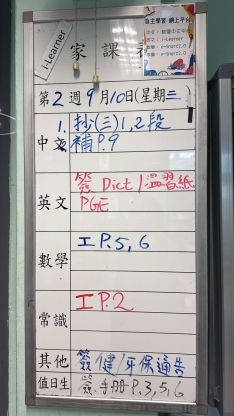 i-Learner
家課表
自主學習 網上平台
第2週9月10日(星期三)
中文
1. 抄(三)1,2段
2. 補P.9
英文
簽 Dict / 溫習紙
PGE
數學
工P.5,6
常識
工P.2
其他
簽/健/牙保通告
值日生
簽.手冊P.3,5,6